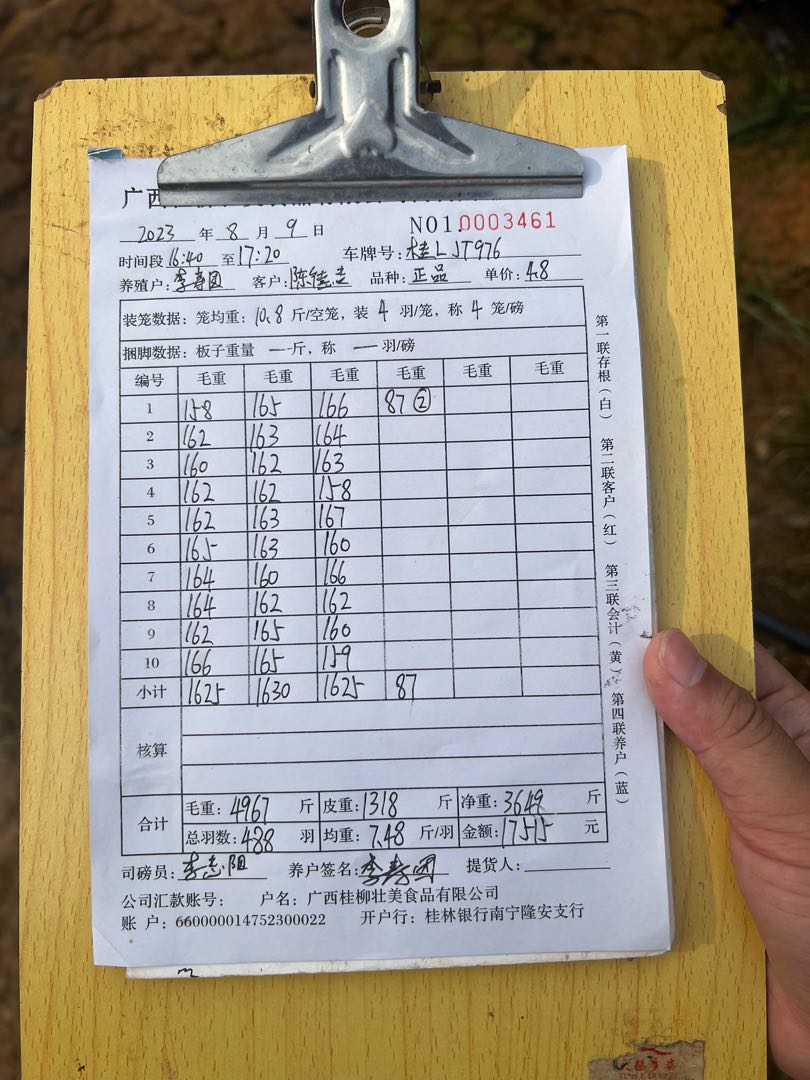 广西
NO1.0003461
2023 年 8 月 9 日
时间段 16:40 至 17:20 车牌号: 桂L JT976
养殖户: 李寿团 客户: 陈佳志 品种: 正品 单价: 4.8
装笼数据: 笼均重: 10.8 斤/空笼, 装 4 羽/笼, 称 4 笼/磅
捆脚数据: 板子重量 — 斤, 称 — 羽/磅
编号 毛重 毛重 毛重 毛重 毛重 毛重
1 158 165 166 87 ②
2 162 163 164
3 160 162 163
4 162 162 158
5 162 163 167
6 165 163 160
7 164 160 166
8 164 162 162
9 162 165 160
10 166 165 159
小计 1625 1630 1625 87
核算
合计 毛重: 4967 斤 皮重: 1318 斤 净重: 3649 斤
总羽数: 488 羽 均重: 7.48 斤/羽 金额: 17515 元
司磅员: 李志阳 养户签名: 李寿团 提货人:
公司汇款账号: 户名: 广西桂柳壮美食品有限公司
账 户: 660000014752300022 开户行: 桂林银行南宁隆安支行
第一联存根(白) 第二联客户(红) 第三联会计(黄) 第四联养户(蓝)